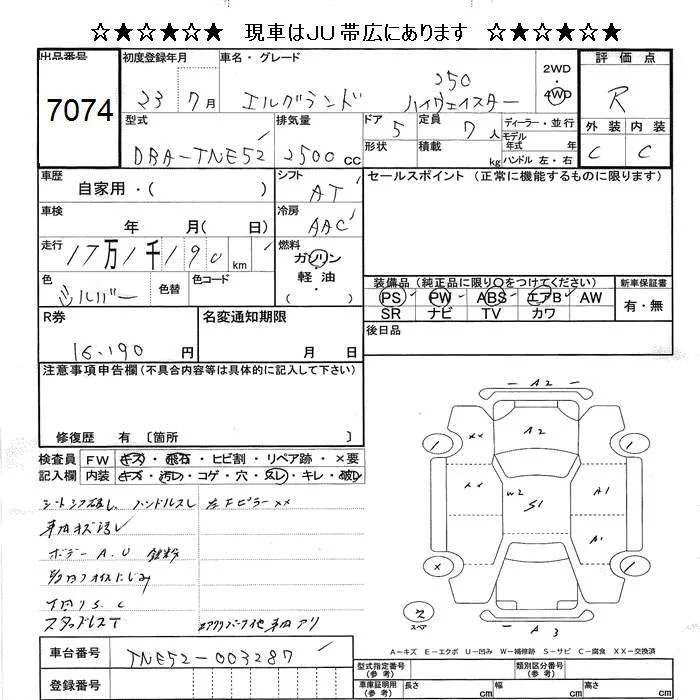 ☆★☆★☆★☆ 現車はJU帯広にあります ☆★☆★☆★☆
出品番号 初度登録年月 車名・グレード 2WD 評価点
7074 23 7月 エルグランド 250 ハイウェイスター 4WD R
型式 排気量 ドア 5 定員 7人 ディーラー・並行 外装 内装
DBA-TNE52 2500cc 形状 積載 kg モデル年式 年 C C
ハンドル 左・右
車歴 自家用・( ) シフト AT セールスポイント (正常に機能するものに限ります)
車検 年 月( 日) 冷房 AAC
走行 17万1千190km 燃料 ガソリン 軽油 ( ・ )
色 シルバー 色替 色コード
装備品(純正品に限り○をつけてください) 新車保証書
PS PW ABS エアB AW 有・無
SR ナビ TV カワ
R券 名変通知期限 後日品
16,190円 月 日
注意事項申告欄(不具合内容等は具体的に記入して下さい)
修復歴 有 〔箇所 〕
検査員 FW キズ・飛石・ヒビ割・リペア跡・×要
記入欄 内装 キズ・汚レ・コゲ・穴・スレ・キレ・破レ
ハンドルスレ 左Fピラーxx
車内キズ汚レ
ボデーA.U
下廻りS.C
スタッドレスT
A2
A2
xx
xx
W2 S1 A1
A1
A3
スペア
A-キズ E-エクボ U-凹み W-補修跡 S-サビ C-腐食 XX-交換済
車台番号 TNE52-003287
登録番号
型式指定番号(参考) 類別区分番号(参考)
車庫証明用(参考) 長さ cm 幅 cm 高さ cm